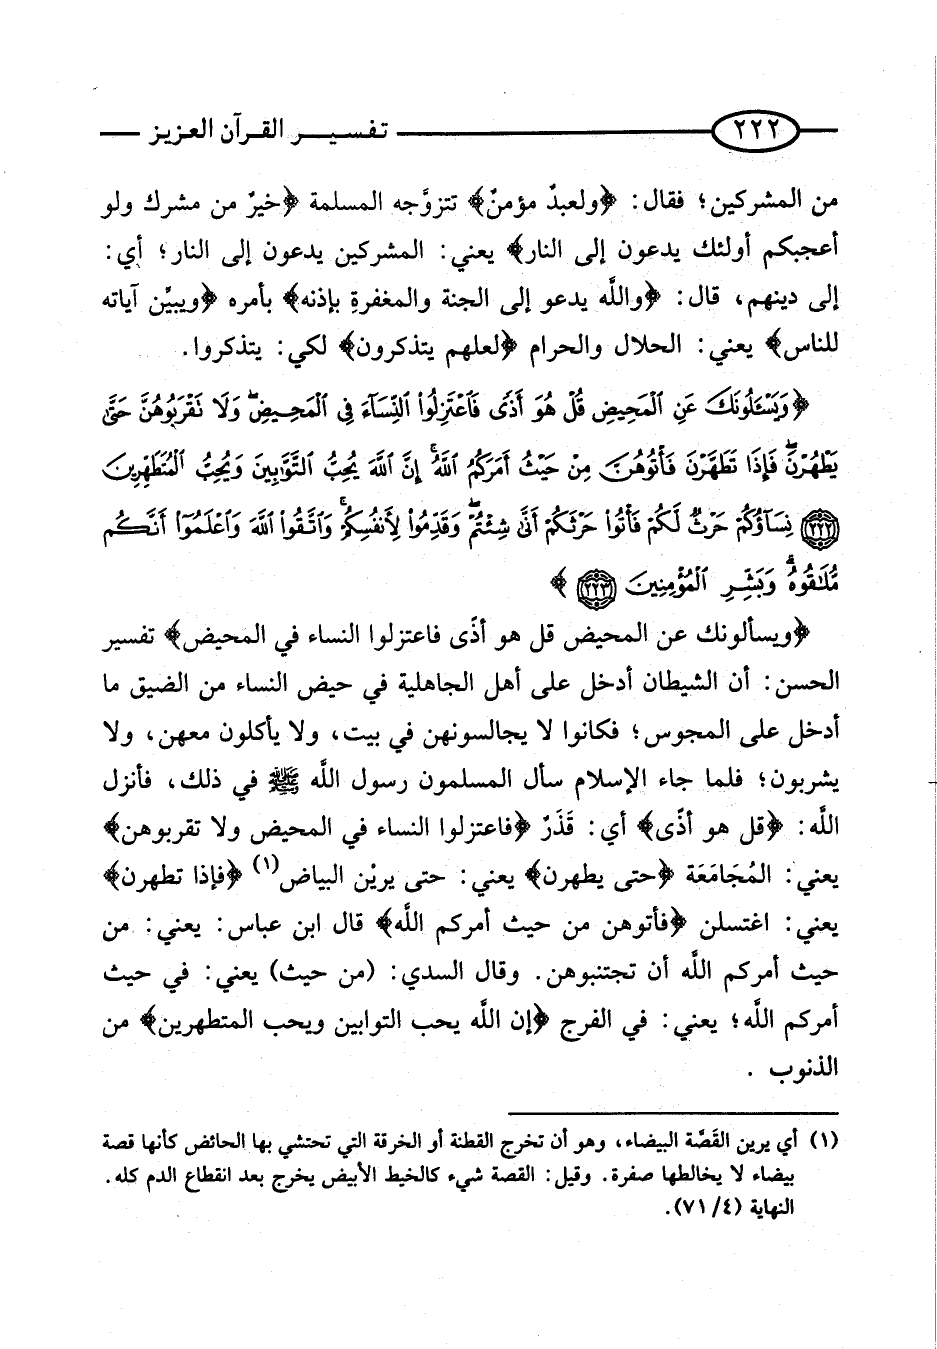 ٢٢٢ تفسير القرآن العزيز
من المشركين؛ فقال: ﴿ولعبدٌ مؤمنٌ﴾ تتزوَّجه المسلمة ﴿خيرٌ من مشرك ولو
أعجبكم أولئك يدعون إلى النار﴾ يعني: المشركين يدعون إلى النار؛ أي:
إلى دينهم، قال: ﴿واللَّه يدعو إلى الجنة والمغفرةِ بإذنه﴾ بأمره ﴿ويبيِّن آياته
للناس﴾ يعني: الحلال والحرام ﴿لعلهم يتذكرون﴾ لكي: يتذكروا.
﴿وَيَسْـَٔلُونَكَ عَنِ ٱلْمَحِيضِ قُلْ هُوَ أَذًى فَٱعْتَزِلُوا۟ ٱلنِّسَآءَ فِى ٱلْمَحِيضِ ۖ وَلَا تَقْرَبُوهُنَّ حَتَّىٰ
يَطْهُرْنَ ۖ فَإِذَا تَطَهَّرْنَ فَأْتُوهُنَّ مِنْ حَيْثُ أَمَرَكُمُ ٱللَّهُ ۚ إِنَّ ٱللَّهَ يُحِبُّ ٱلتَّوَّٰبِينَ وَيُحِبُّ ٱلْمُتَطَهِّرِينَ
﴿٢٢٢﴾ نِسَآؤُكُمْ حَرْثٌ لَّكُمْ فَأْتُوا۟ حَرْثَكُمْ أَنَّىٰ شِئْتُمْ ۖ وَقَدِّمُوا۟ لِأَنفُسِكُمْ ۚ وَٱتَّقُوا۟ ٱللَّهَ وَٱعْلَمُوٓا۟ أَنَّكُم
مُّلَٰقُوهُ ۗ وَبَشِّرِ ٱلْمُؤْمِنِينَ ﴿٢٢٣﴾ ﴾
﴿ويسألونك عن المحيض قل هو أذًى فاعتزلوا النساء في المحيض﴾ تفسير
الحسن: أن الشيطان أدخل على أهل الجاهلية في حيض النساء من الضيق ما
أدخل على المجوس؛ فكانوا لا يجالسونهن في بيت، ولا يأكلون معهن، ولا
يشربون؛ فلما جاء الإسلام سأل المسلمون رسول اللَّه ﷺ في ذلك، فأنزل
اللَّه: ﴿قل هو أذًى﴾ أي: قَذَرٌ ﴿فاعتزلوا النساء في المحيض ولا تقربوهن﴾
يعني: المُجَامَعَة ﴿حتى يطهرن﴾ يعني: حتى يريْن البياض(١) ﴿فإذا تطهرن﴾
يعني: اغتسلن ﴿فأتوهن من حيث أمركم اللَّه﴾ قال ابن عباس: يعني: من
حيث أمركم اللَّه أن تجتنبوهن. وقال السدي: (من حيث) يعني: في حيث
أمركم اللَّه؛ يعني: في الفرج ﴿إن اللَّه يحب التوابين ويحب المتطهرين﴾ من
الذنوب .
(١) أي يرين القَصَّة البيضاء، وهو أن تخرج القطنة أو الخرقة التي تحتشي بها الحائض كأنها قصة
بيضاء لا يخالطها صفرة. وقيل: القصة شيء كالخيط الأبيض يخرج بعد انقطاع الدم كله.
النهاية (٧١/٤).